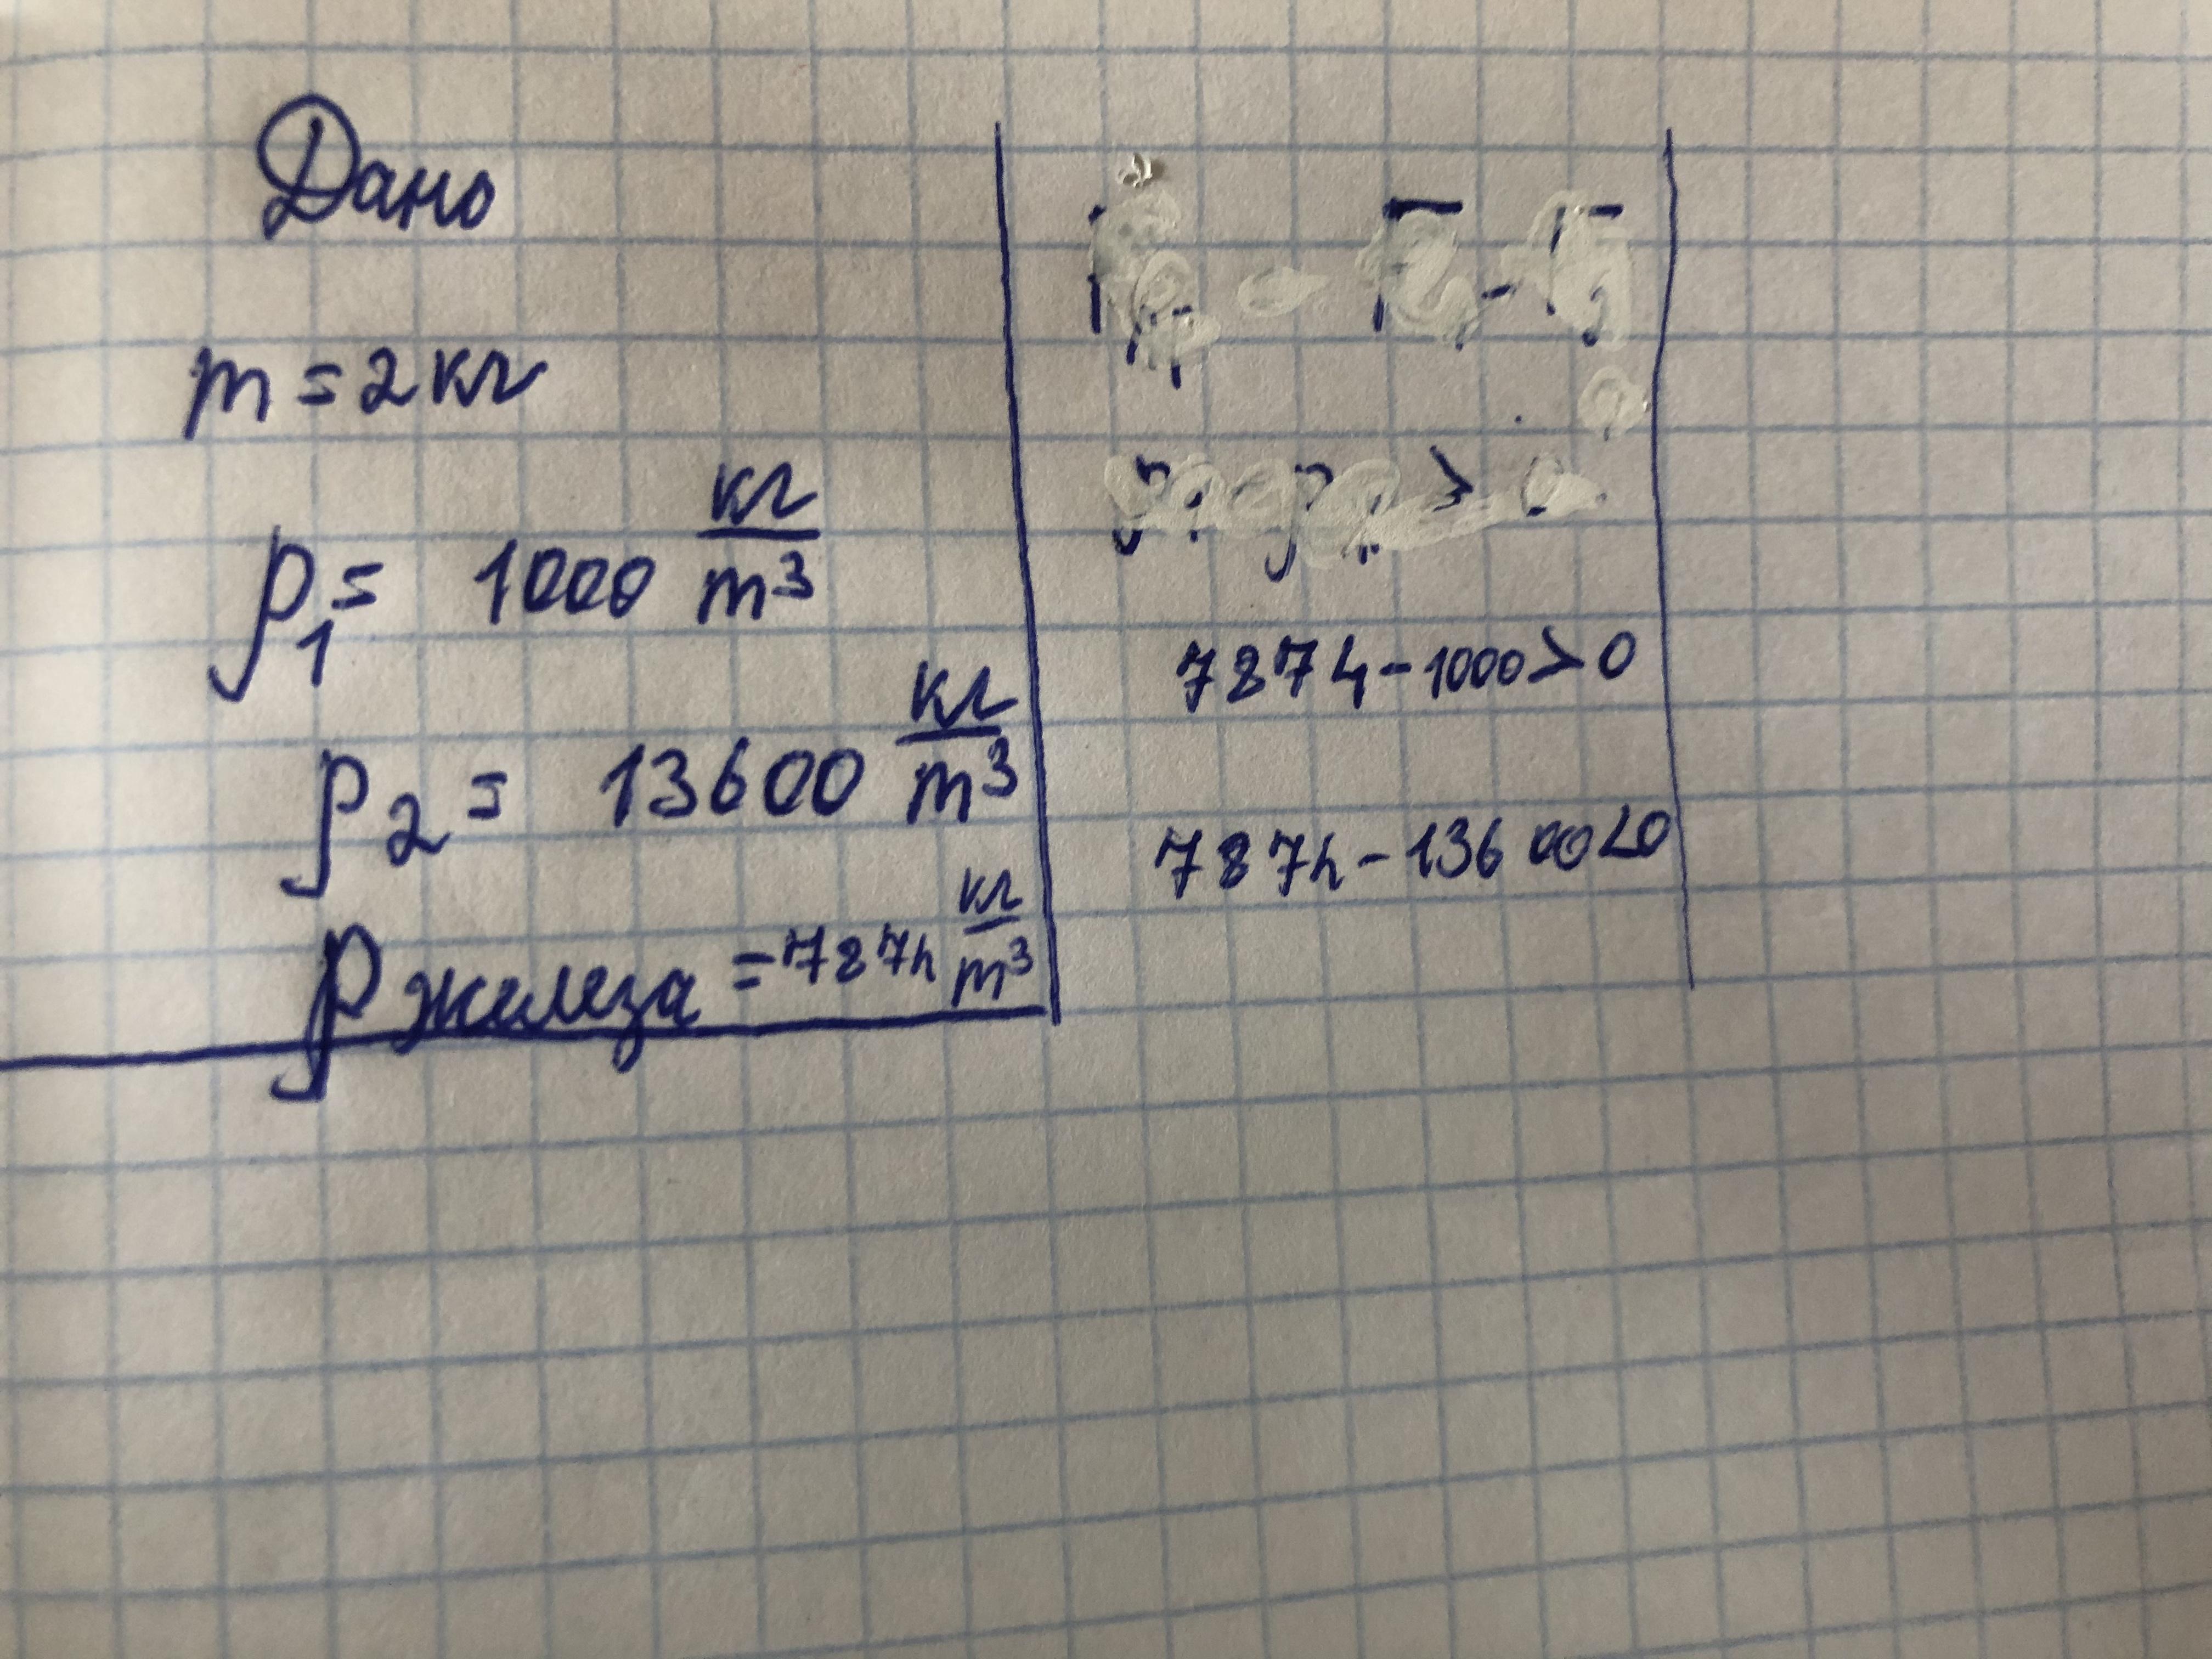 Дано
m = 2 кг
ρ₁ = 1000 кг/m³
ρ₂ = 13600 кг/m³
ρ железа = 7874 кг/m³
7874 - 1000 > 0
7874 - 13600 < 0